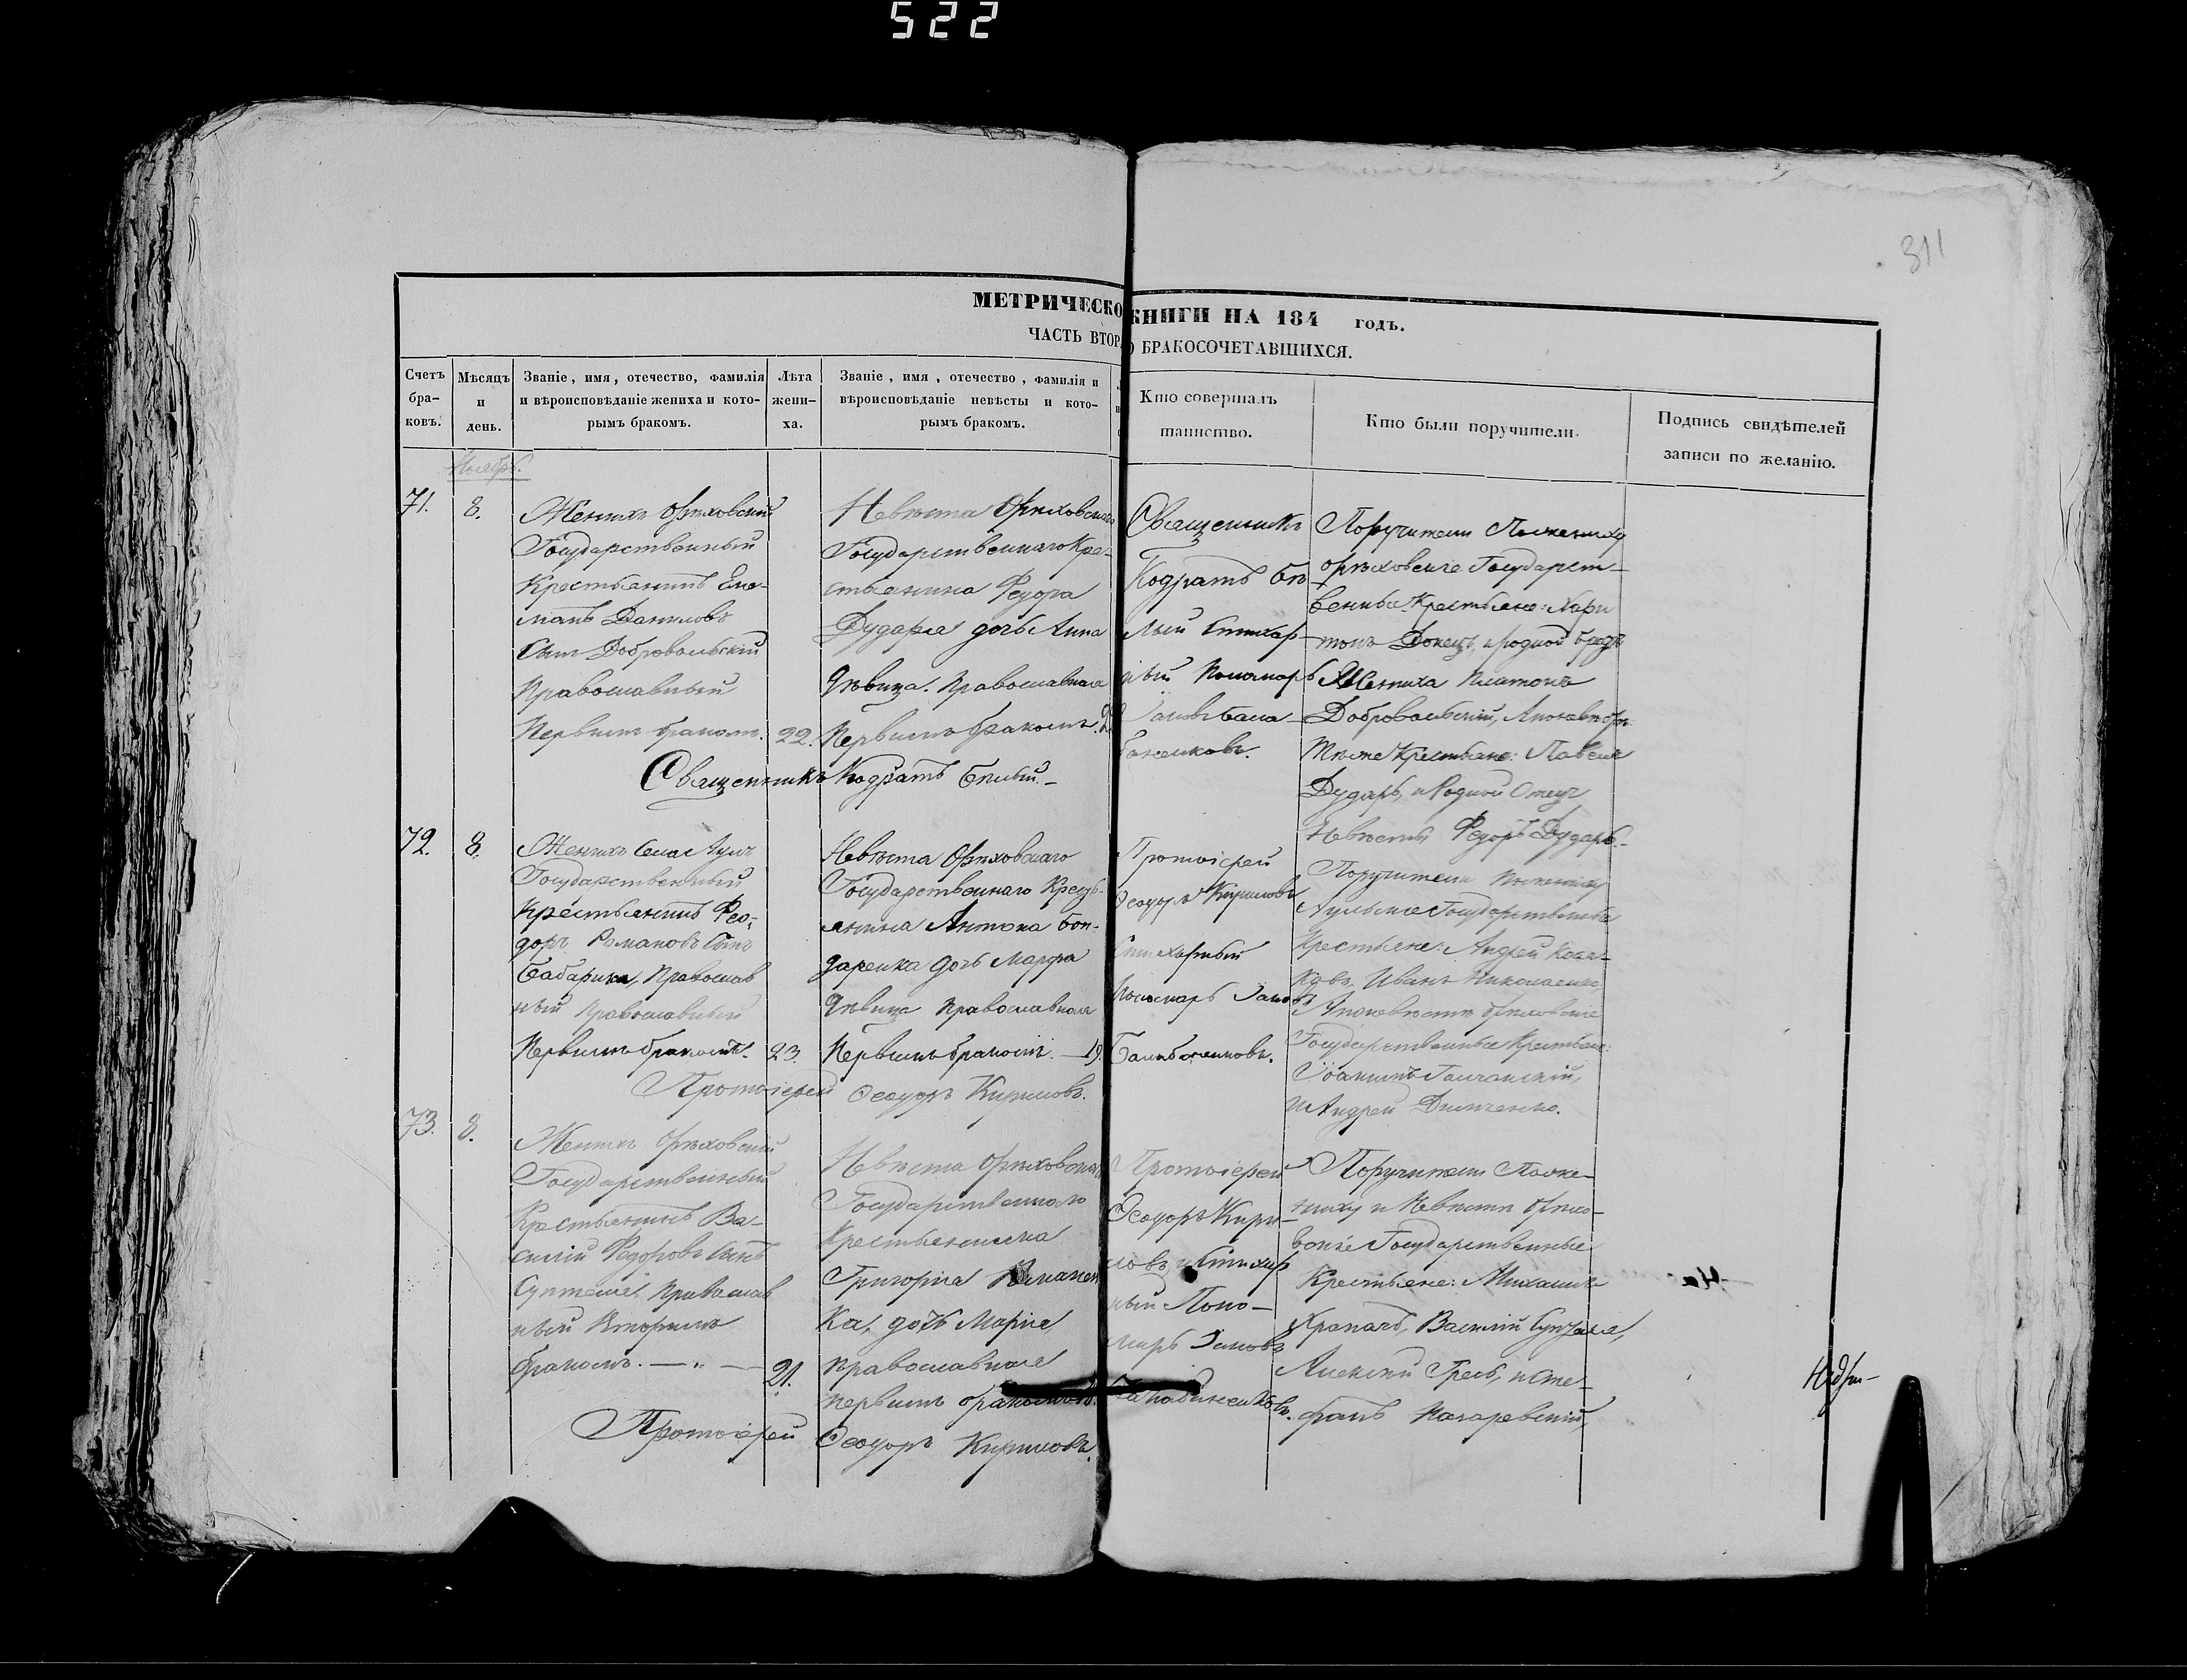 522
311
МЕТРИЧЕСКО КНИГИ НА 184 годъ.
ЧАСТЬ ВТОР О БРАКОСОЧЕТАВШИХСЯ.
Счетъ бра-ковъ.
Мѣсяцъ и день.
Званіе, имя, отечество, фамилія
и вѣроисповѣданіе жениха и кото-
рымъ бракомъ.
Лѣта жени-ха.
Званіе, имя, отечество, фамилія и
вѣроисповѣданіе невѣсты и кото-
рымъ бракомъ.
Кто совершалъ
таинство.
Кто были поручители.
Подпись свидѣтелей
записи по желанію.
Ноябрь.
71.
8.
Женихъ Орѣховскій
Государственный
Крестьянинъ Еме-
Даниловъ
Сынъ Добровольскій
Православный
Первымъ бракомъ.
22.
Невѣста Орѣховскаго
Государственнаго Кре-
стьянина Федора
Дударя дочь Анна
дѣвица. Православная
Первымъ бракомъ.
Священникъ
Кодратъ Бѣ-
лый Стихар-
ный Пономарь
Поручители По жениху
Орѣховскіе Государст-
венные Крестьяне: Хари
тонъ Донецъ, и родной братъ
Жениха Платонъ
Добровольскій, А по невѣстѣ
Тѣже Крестьяне: Павелъ
Дударь, и Родной Отецъ
Невѣсты Федоръ Дударь.
Священникъ Кодратъ Бѣлый.
72.
8.
Женихъ Села Аулъ
Государственный
Крестьянинъ Фео-
доръ Романовъ Сынъ
Бабарика, Православ
ный Православный
Первымъ бракомъ.
23.
Невѣста Орѣховскаго
Государственнаго Кресть-
янина Антона Бон-
даренка дочь Марфа
дѣвица Православная
Первымъ бракомъ. — 19.
Протоіерей
Ѳеодоръ Кириловъ
Стихарный
Пономарь
Поручители по жениху
Аульские Государственные
Крестьяне: Андрей
Иванъ Николаенко
А по невѣстѣ Орѣховскіе
Государственные Крестьяне:
Іоакимъ
и Андрей
Протоіерей Ѳеодоръ Кириловъ.
73.
8.
Женихъ Орѣховскій
Государственный
Крестьянинъ Ва-
силій Федоровъ Сынъ
Православ
ный Вторымъ
бракомъ. — „ —
21.
Невѣста Орѣховскаго
Государственнаго
Крестьянина
Григорія
ка, дочь Марія
православная
первымъ бракомъ
Протоіерей
Ѳеодоръ Кири-
ловъ и Стихар
ный Поно-
марь
Поручители По же-
ниху и Невѣстѣ Орѣхо-
вскіе Государственные
Крестьяне: Михаилъ
Василій
Алексѣй Гресь, и Сте-
фанъ
Протоіерей Ѳеодоръ Кириловъ.